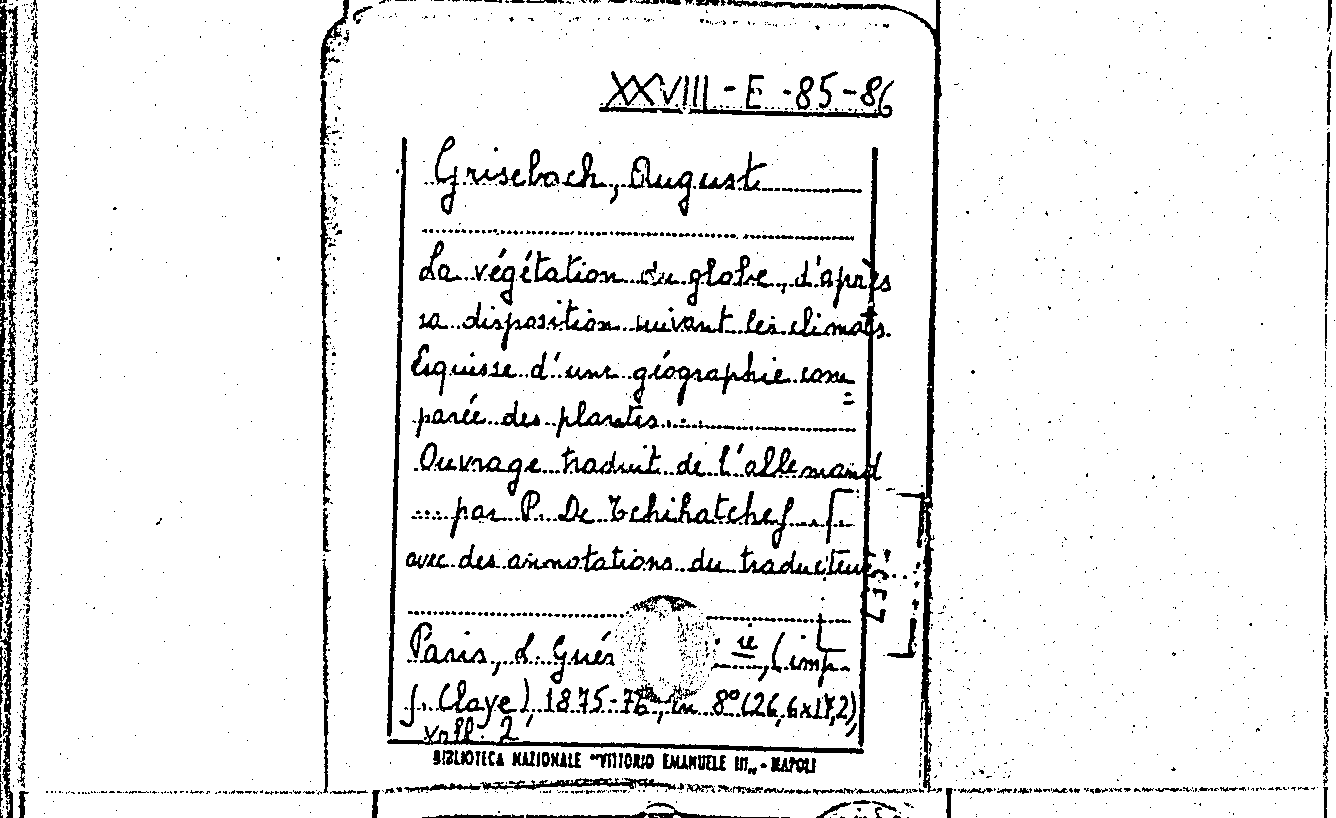 XXVIII - E - 85-86
Grisebach, August
La végétation du globe, d'après
sa disposition suivant les climats.
Esquisse d'une géographie com=
parée des plantes...
Ouvrage traduit de l'allemand
... par P. De Tchihatchef ...
avec des annotations du traducteur.
Paris, L. Gués ie, (imp.
J. Claye), 1875-76, in 8° (26,6x17,2),
voll. 2
BIBLIOTECA NAZIONALE "VITTORIO EMANUELE III„ - NAPOLI